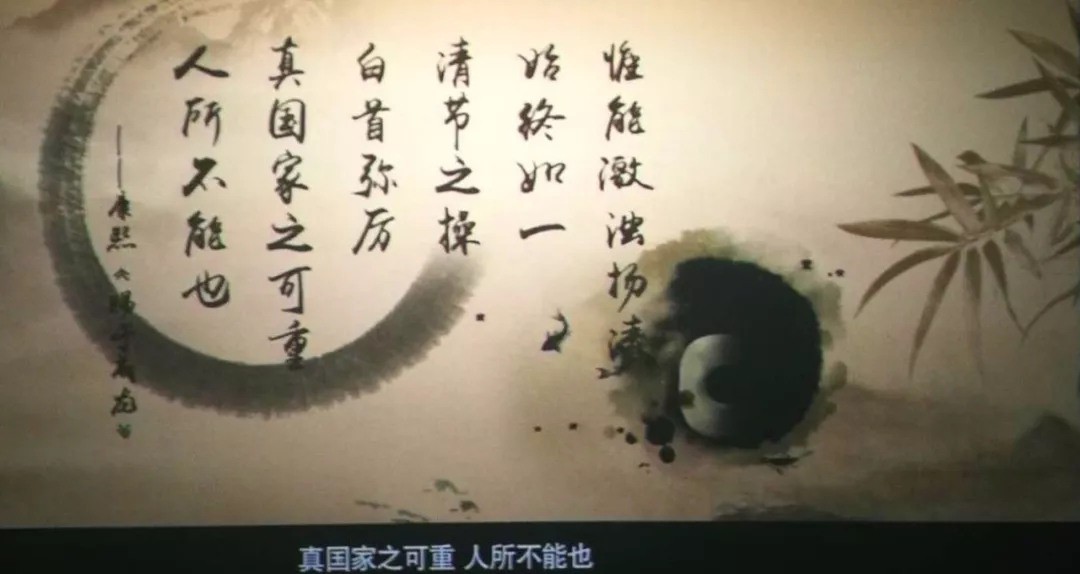 惟能激浊扬清
始终如一
清节之操
白首弥厉
真国家之可重
人所不能也
——康熙《赐于成龙》
真国家之可重 人所不能也